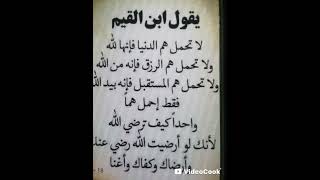 يقول ابن القيم
لا تحمل هم الدنيا فإنها لله
ولا تحمل هم الرزق فإنه من الله
ولا تحمل هم المستقبل فإنه بيد الله
فقط إحمل هماً
واحداً كيف ترضي الله
لأنك لو أرضيت الله رضي عنك
وأرضاك وكفاك وأغنا
VideoCook